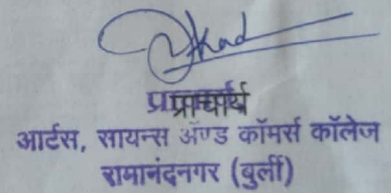 प्राचार्य
आर्टस, सायन्स ॲण्ड कॉमर्स कॉलेज
रामानंदनगर (बुर्ली)